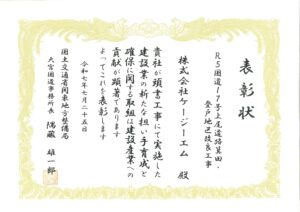 表彰状
R5国道17号上尾道路箕田・
登戸地区改良工事
株式会社ケージーエム 殿
貴社が頭書工事にて実施した
建設業の新たな担い手育成と
確保に関する取組は建設産業への
貢献が顕著であります
よってこれを表彰します
令和七年七月二十五日
国土交通省関東地方整備局
大宮国道事務所長 隅藏 雄一郎